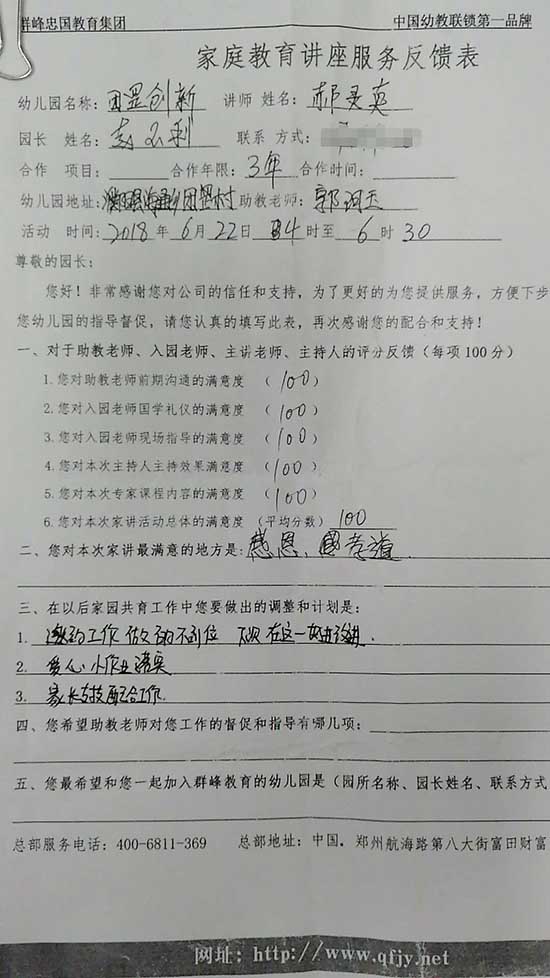 群峰忠国教育集团 中国幼教联锁第一品牌
家庭教育讲座服务反馈表
幼儿园名称: 创新 讲师 姓名: 郝英
园长 姓名: 利 联系 方式:
合作 项目: 合作年限: 3年 合作时间:
幼儿园地址: 村 助教老师: 郭
活动 时间: 2018 年 6 月 22 日 4 时至 6 时 30
尊敬的园长:
您好! 非常感谢您对公司的信任和支持, 为了更好的为您提供服务, 方便下步
您幼儿园的指导督促, 请您认真的填写此表, 再次感谢您的配合和支持!
一、对于助教老师、入园老师、主讲老师、主持人的评分反馈 (每项100分)
1.您对助教老师前期沟通的满意度 (100)
2.您对入园老师国学礼仪的满意度 (100)
3.您对入园老师现场指导的满意度 (100)
4.您对本次主持人主持效果满意度 (100)
5.您对本次专家课程内容的满意度 (100)
6.您对本次家讲活动总体的满意度 (平均分数) 100
二、您对本次家讲最满意的地方是: 感恩、孝道.
三、在以后家园共育工作中您要做出的调整和计划是:
1. 邀约工作做的不到位 下次在这一
2. 爱心小作业落实
3. 家长支持配合工作
四、您希望助教老师对您工作的督促和指导有哪几项:
五、您最希望和您一起加入群峰教育的幼儿园是 (园所名称、园长姓名、联系方式
总部服务电话: 400-6811-369 总部地址: 中国. 郑州航海路第八大街富田财富
网址: http://www.qfjy.net